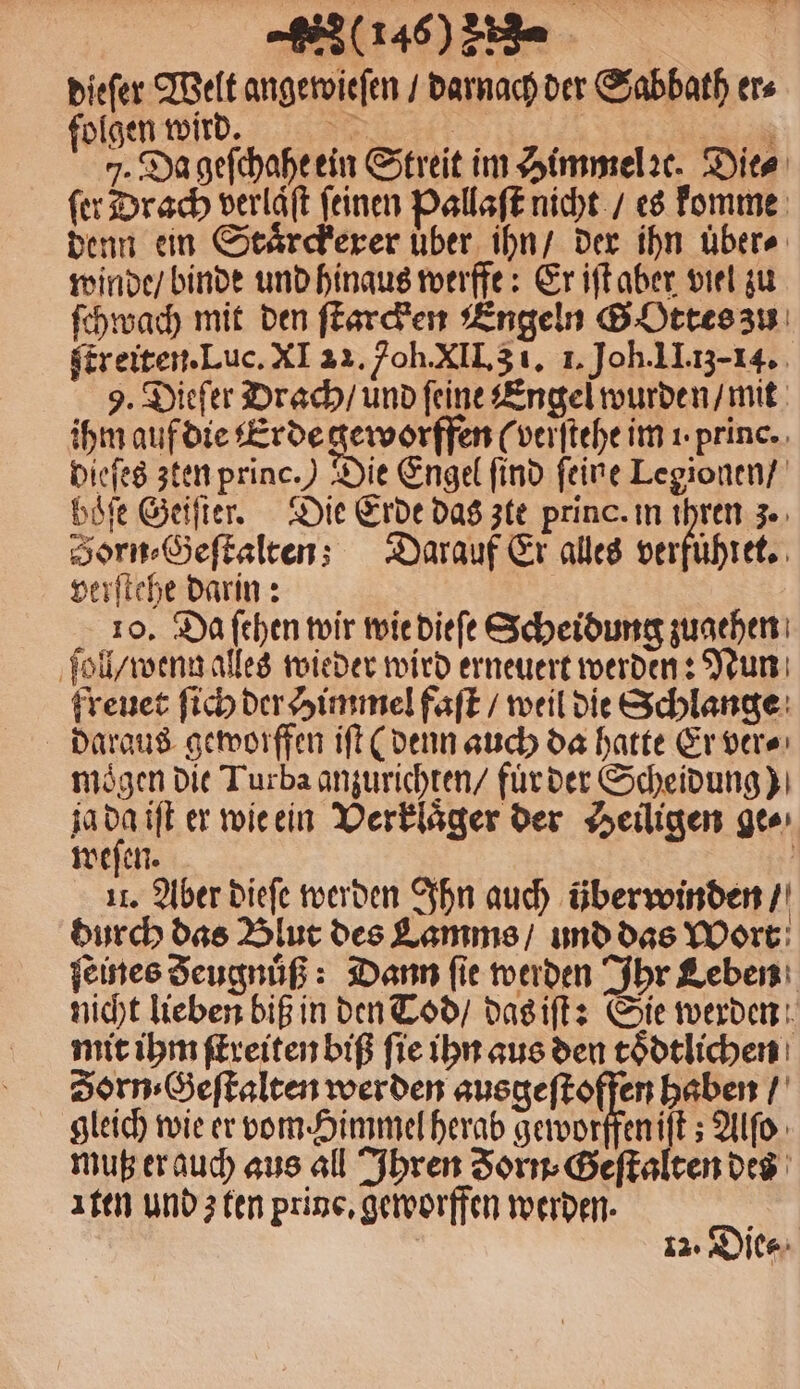 (146)
dieſer Welt angewieſen / darnach der Sabbath er⸗
folgen wird.
7. Da geſchahe ein Streit im Himmel ꝛc. Die⸗
ſer Drach verlaͤſt ſeinen Pallaſt nicht / es komme
denn ein Staͤrckerer uͤber ihn / der ihn uͤber⸗
winde / binde und hinaus werffe: Er iſt aber viel zu
ſchwach mit den ſtarcken Engeln GOttes zu
ſtreiten. Luc. XI 22. Joh. XII. 31. 1. Joh. II. 13-14.
9. Dieſer Drach / und ſeine Engel wurden / mit
ihm auf die Erde geworffen (verſtehe im 1. princ.
dieſes 3ten princ.) Die Engel ſind ſeine Legionen /
boͤſe Geiſter. Die Erde das 3te princ. in ihren 3.
Zorn⸗Geſtalten; Darauf Er alles verfuͤhret.
verſtehe darin:
10. Da ſehen wir wie dieſe Scheidung zugehen
ſoll / wenn alles wieder wird erneuert werden: Nun
freuet ſich der Himmel faſt / weil die Schlange
daraus geworffen iſt (denn auch da hatte Er ver⸗
moͤgen die Turba anzurichten / fuͤr der Scheidung)
ja da iſt er wie ein Verklaͤger der Heiligen ge⸗
weſen.
11. Aber dieſe werden Ihn auch uͤberwinden /
durch das Blut des Lamms / und das Wort
ſeines Zeugnuͤß: Dann ſie werden Ihr Leben
nicht lieben biß in den Tod / das iſt: Sie werden
mit ihm ſtreiten biß ſie ihn aus den toͤdtlichen
Zorn⸗Geſtalten werden ausgeſtoſſen haben /
gleich wie er vom Himmel herab geworffen iſt; Alſo
muß er auch aus all Ihren Zorn⸗Geſtalten des
1ten und 3ten princ. geworffen werden.
12. Die⸗